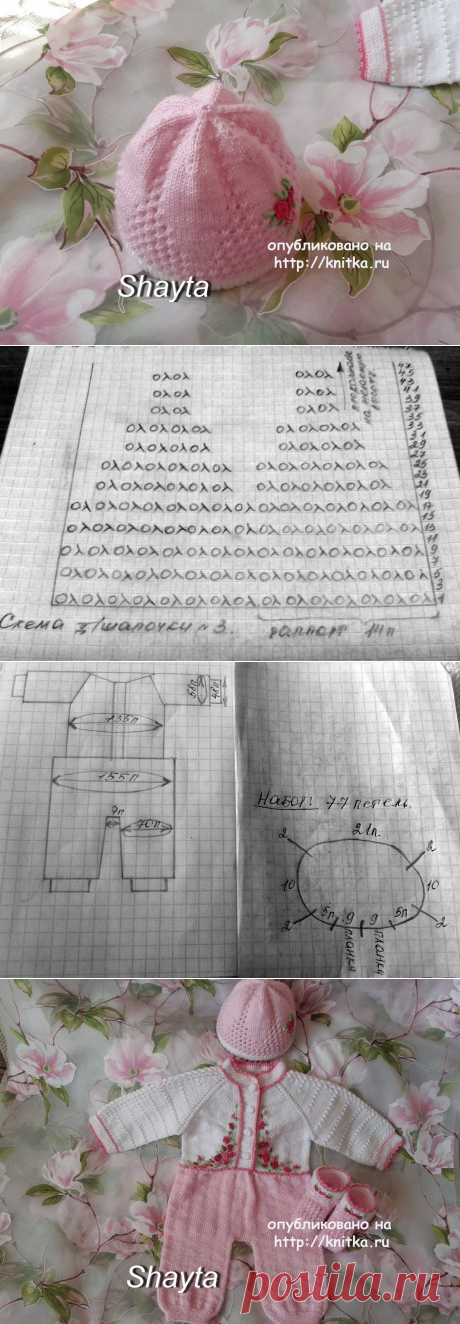 опубликовано на
http://knitka.ru
Shayta
ОλОλ ОλОλ
ОλОλ ОλОλ
ОλОλ ОλОλ
47
45
43
41
39
37
35
33
31
29
27
25
23
21
19
17
15
13
11
9
7
5
3
1
Схема шапочки №3.
раппорт 14п
58п
48п
135п
155п
7п
70п
Набор: 77 петель.
21п.
2
2
10
10
2
5п
9
9
5п
2
планка
планка
опубликовано на
http://knitka.ru
Shayta
postila.ru